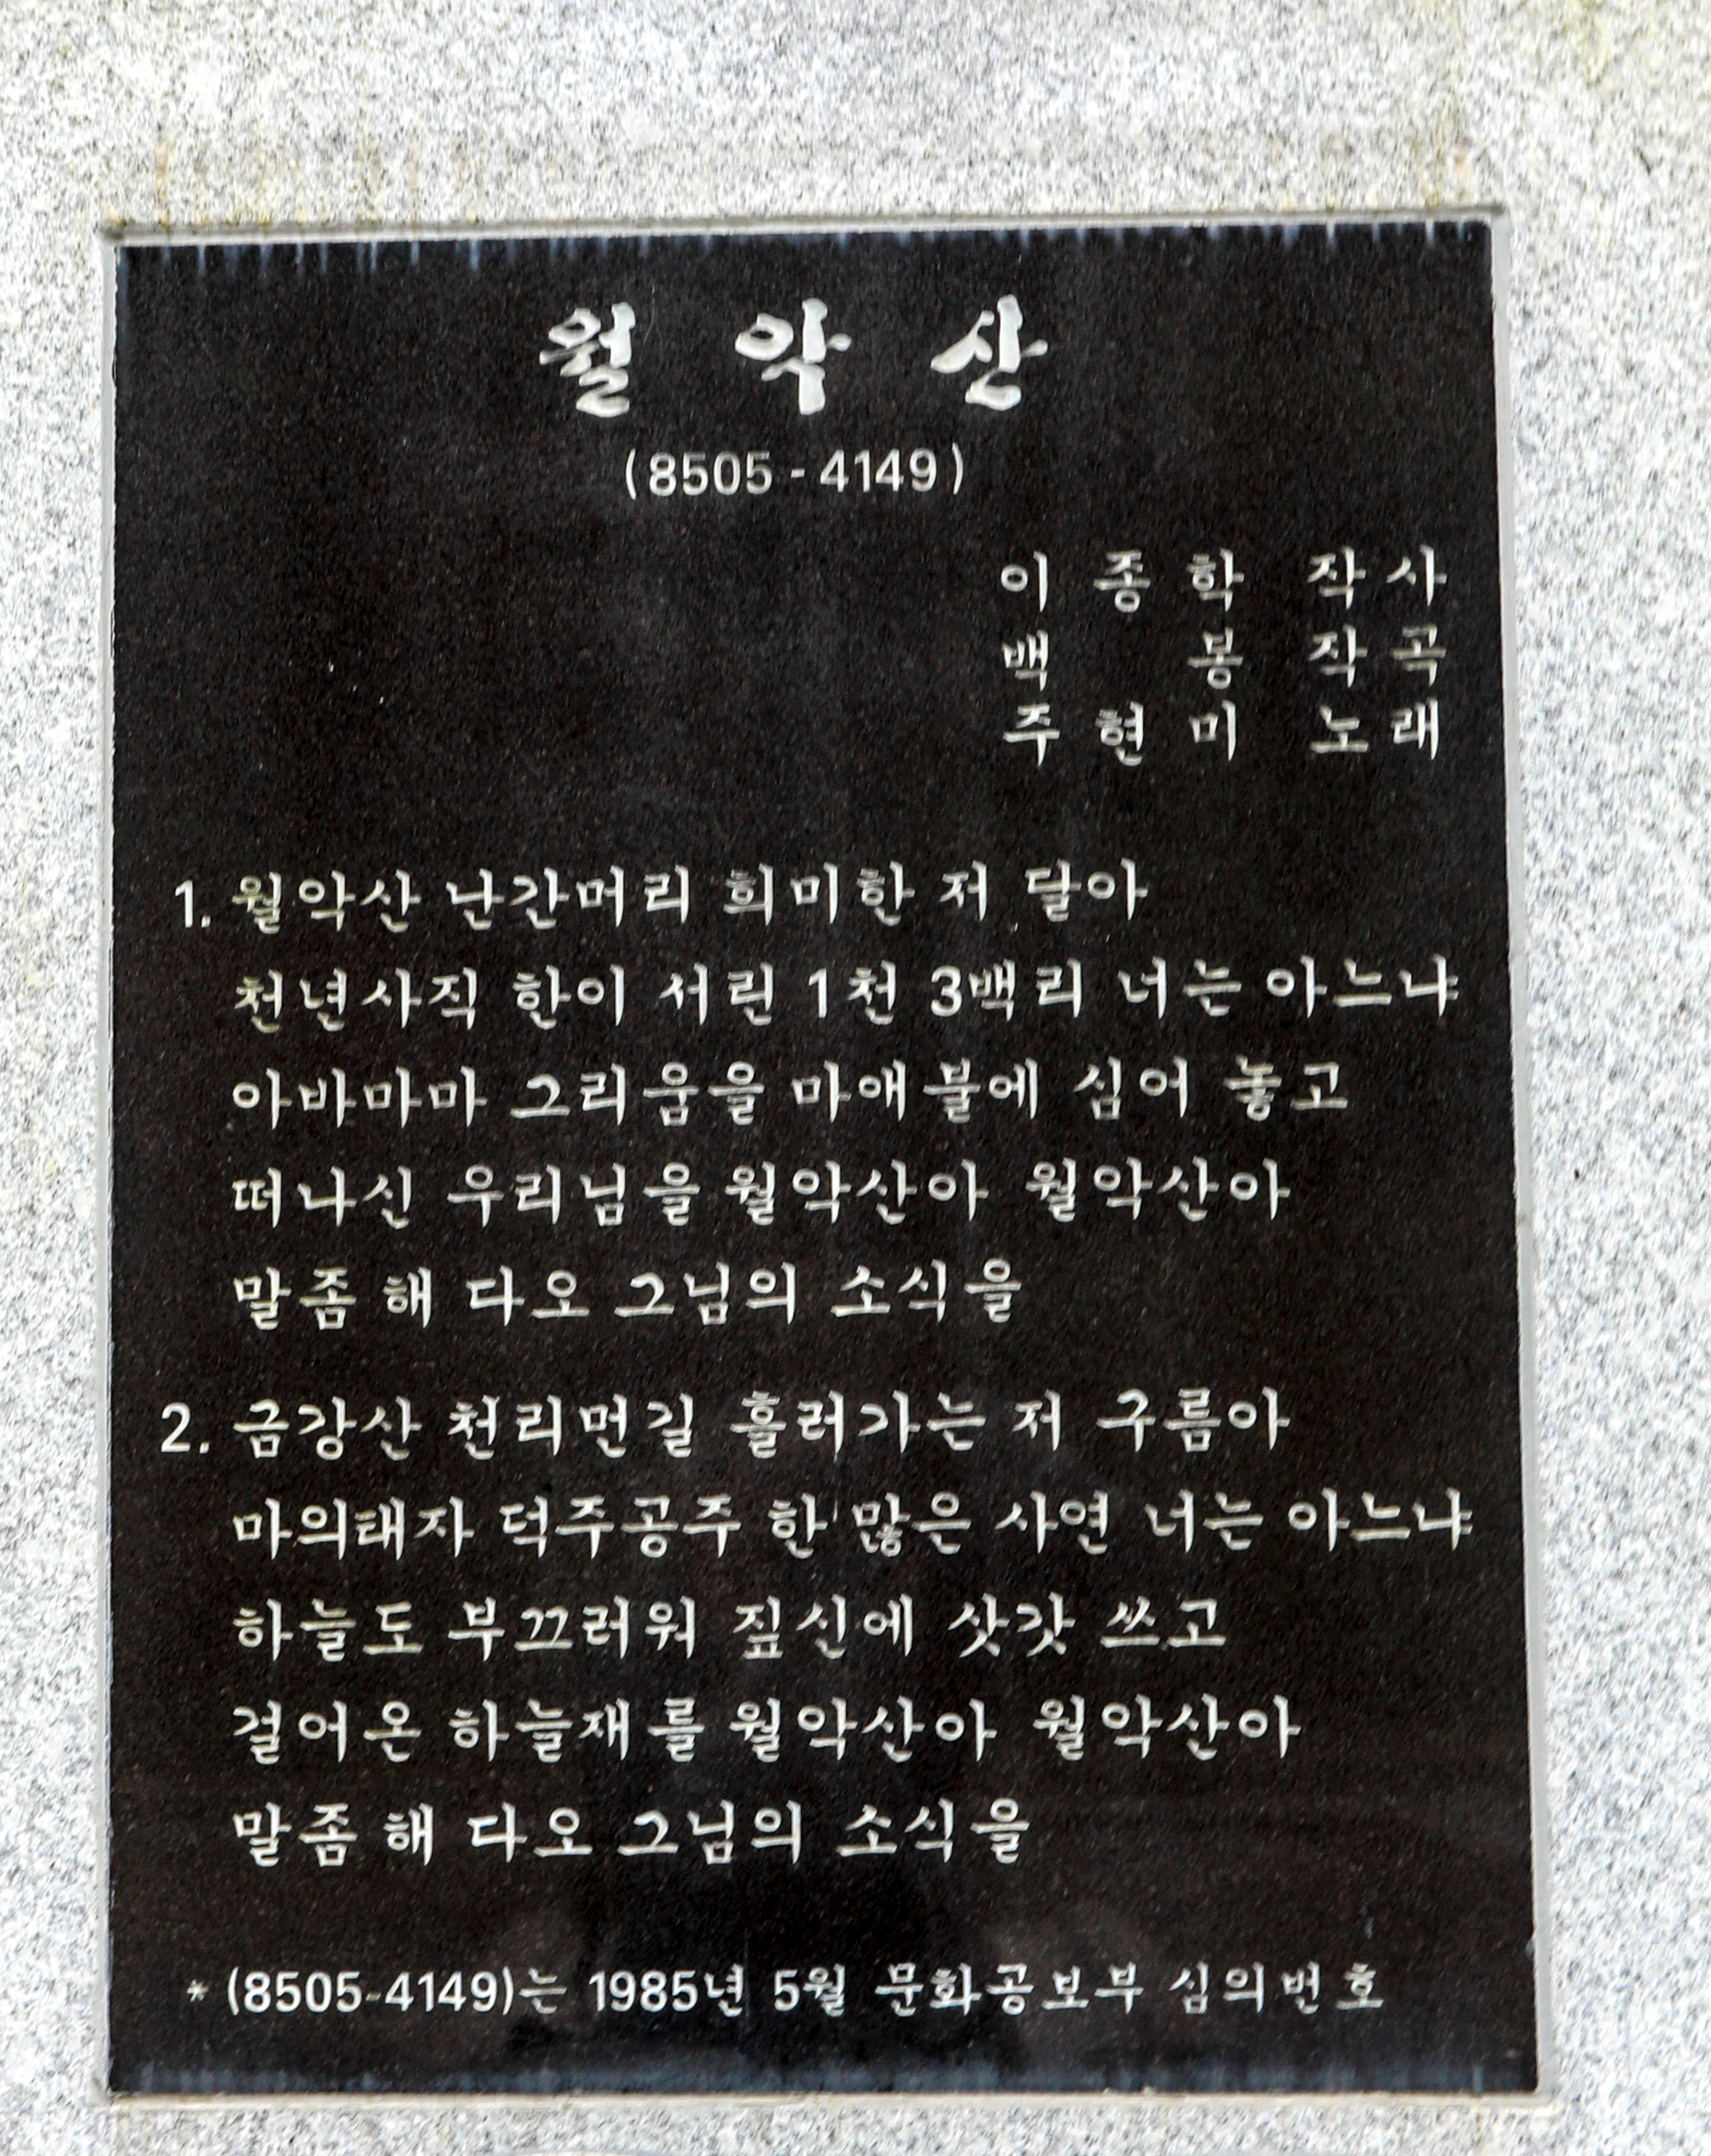 월 악 산
(8505-4149)
이 종 학 작사
백 봉 작곡
주 현 미 노래
1. 월악산 난간머리 희미한 저 달아
천년사직 한이 서린 1천 3백리 너는 아느냐
아바마마 그리움을 마애불에 심어 놓고
떠나신 우리님을 월악산아 월악산아
말좀 해 다오 그님의 소식을
2. 금강산 천리먼길 흘러가는 저 구름아
마의태자 덕주공주 한 많은 사연 너는 아느냐
하늘도 부끄러워 짚신에 삿갓 쓰고
걸어온 하늘재를 월악산아 월악산아
말좀 해 다오 그님의 소식을
* (8505-4149)는 1985년 5월 문화공보부 심의번호